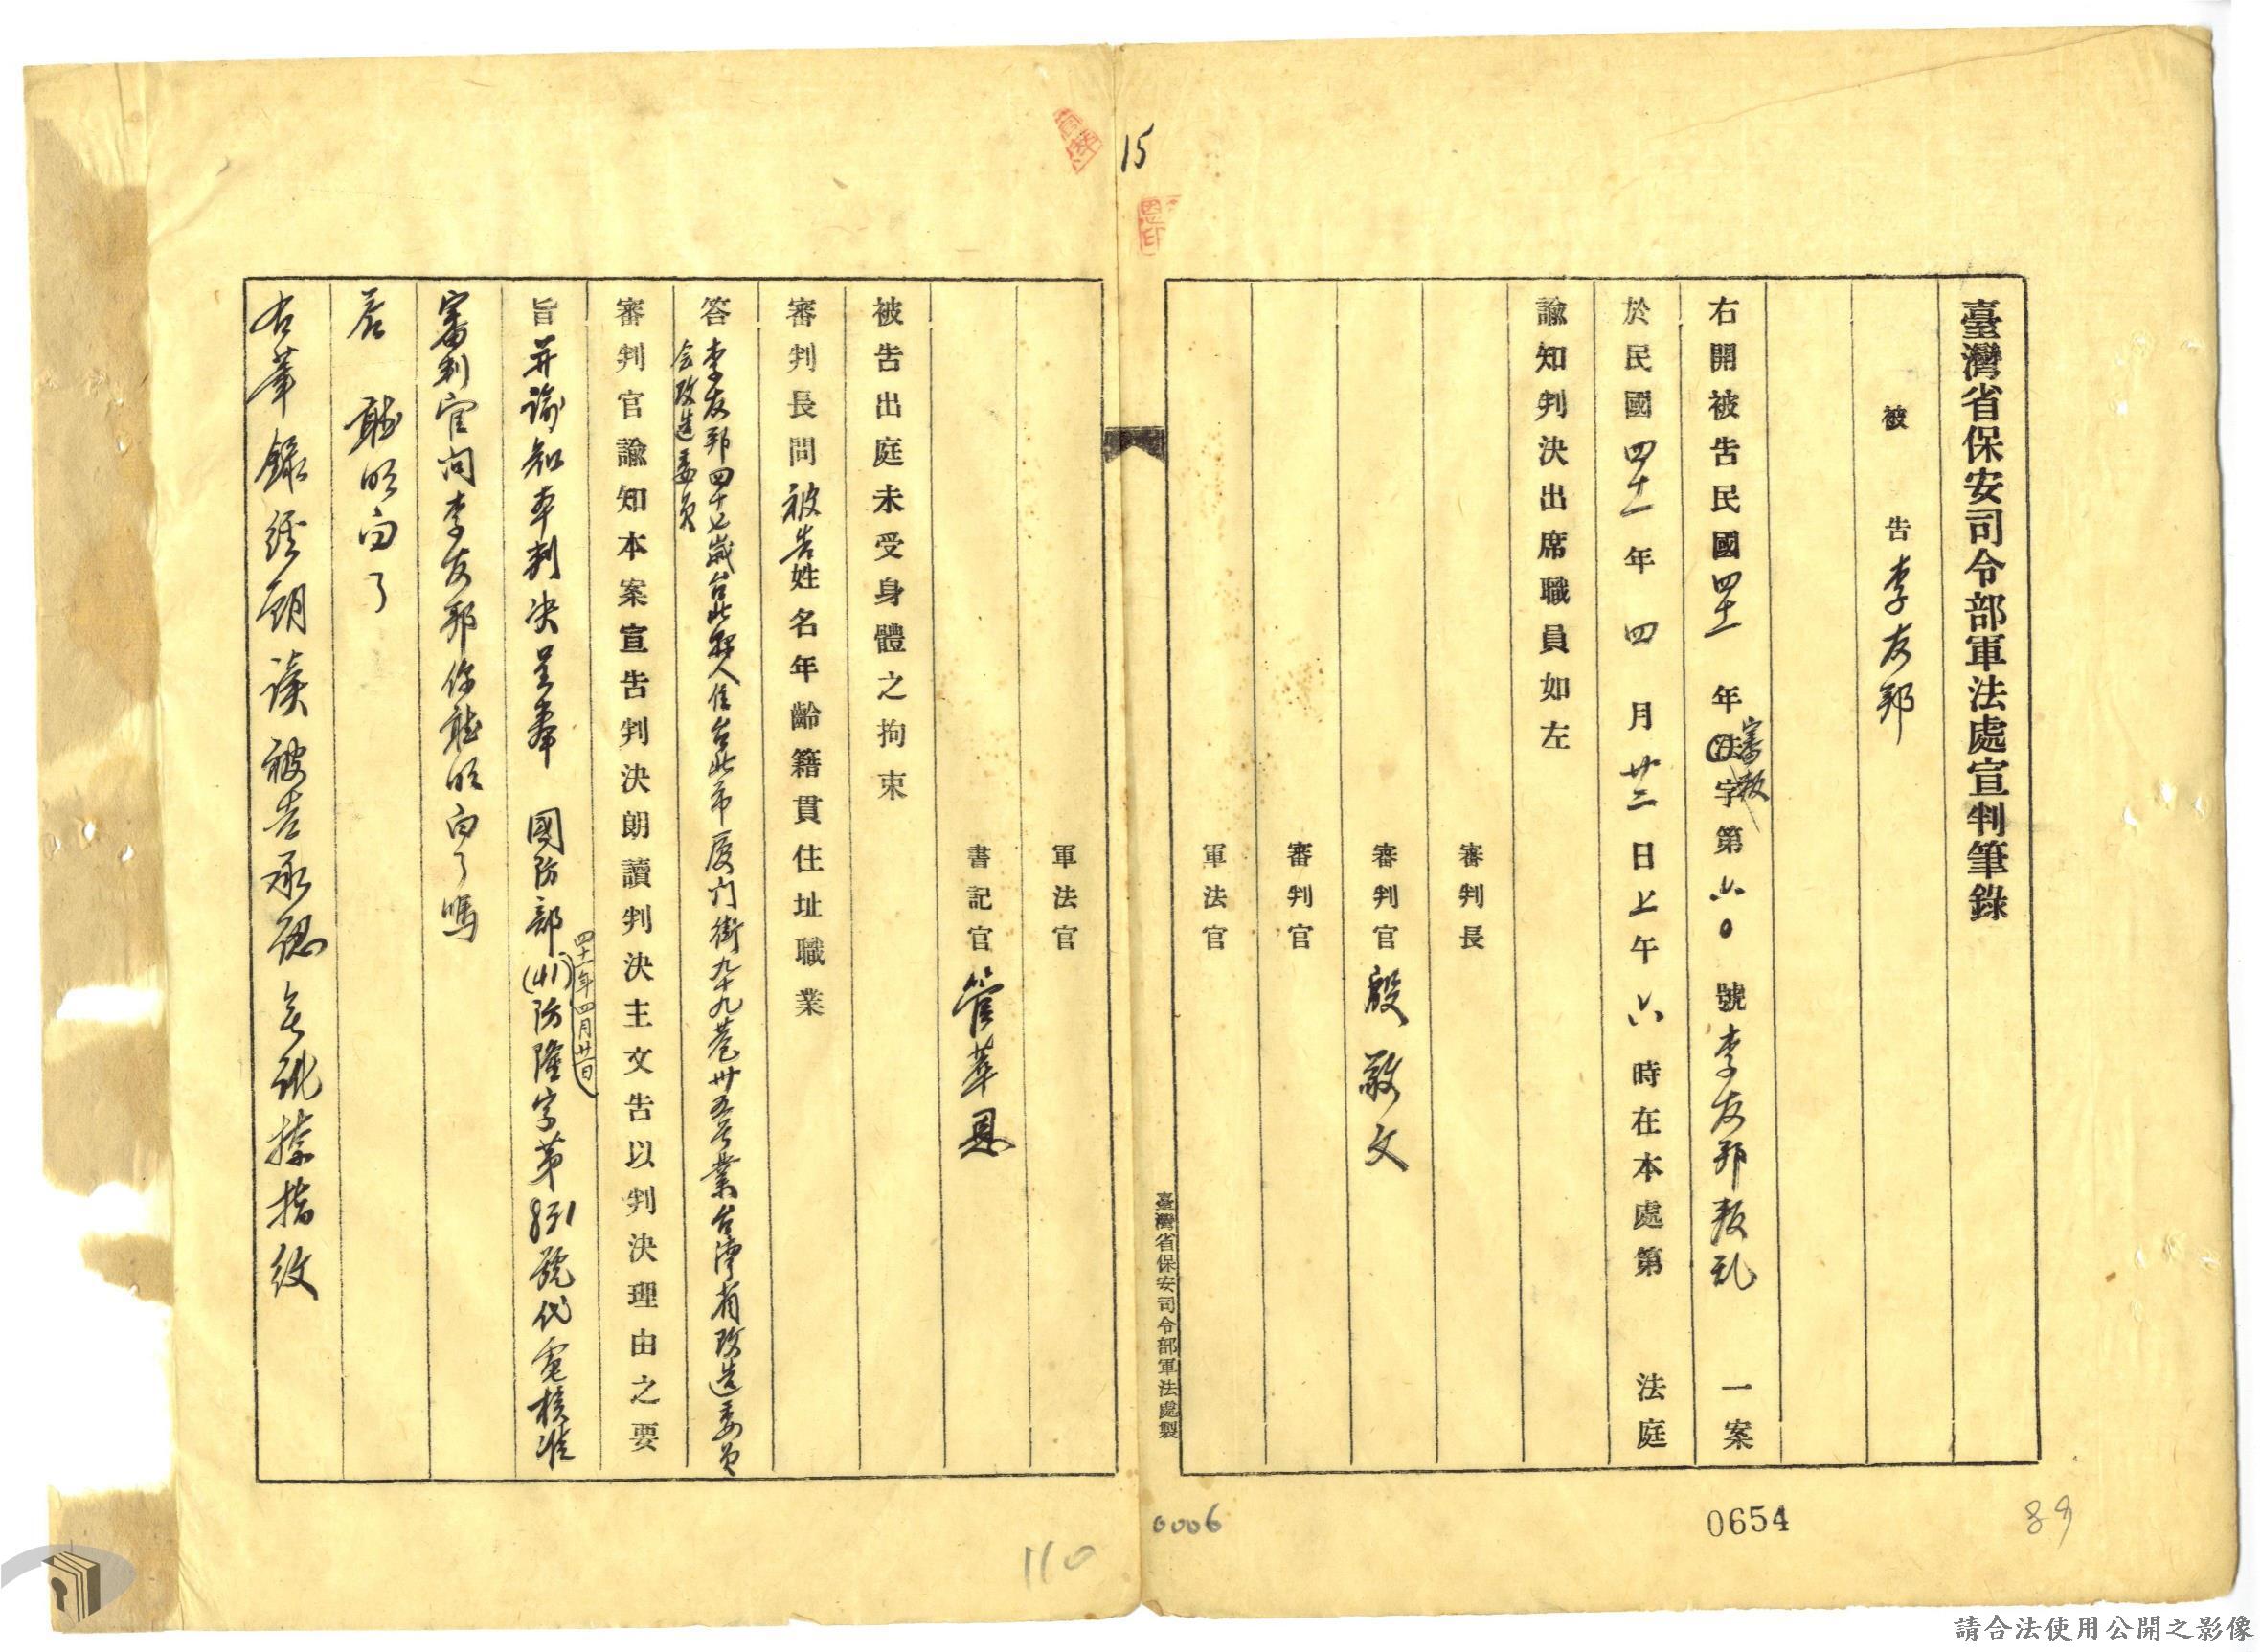 臺灣省保安司令部軍法處宣判筆錄
被告李友邦
右開被告民國四十一年審叛字第六〇號李友邦叛乱一案
於民國四十一年四月廿二日上午六時在本處第法庭
諭知判決出席職員如左
審判長
審判官殷敬文
審判官
軍法官
臺灣省保安司令部軍法處製
軍法官
書記官管華恩
被告出庭未受身體之拘束
審判長問被告姓名年齡籍貫住址職業
答李友邦四十七歲台北縣人住台北市厦门街九十九巷卅五号業台湾省改造委員
会改造委員
審判官諭知本案宣告判決朗讀判決主文告以判決理由之要
旨并諭知本判決呈奉國防部(41)防隆字第831號代電核准
四十一年四月廿一日
審判官问李友邦你聽明白了嗎
答聽明白了
右筆錄經朗读被告承認無訛捺指纹
15
0006
0654
89
110
請合法使用公開之影像